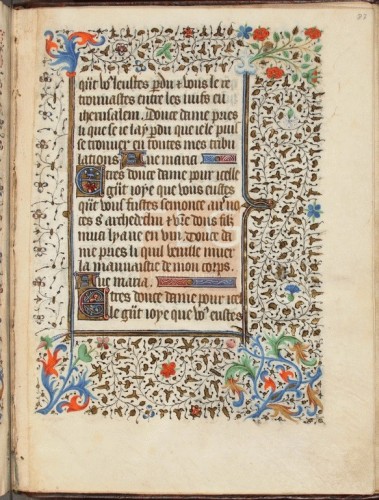 qñt vo9 leustes pdu et vous le re
trouuastes entre les iuifs en
iherusalem. Douce dame pries
li que se ie lay pdu que ie le puis
se trouuer en toutes mes tribu
lations Aue maria
Et tres douce dame pour icelle
gñt ioye que vous eustes
que vous fustes semonce aus no
ces s' archedeclin et vre dous filz
mua lyaue en vin Douce da
me pries li quil veuille muer
la mauuaistie de mon corps.
Aue maria.
Et tres douce dame pour icel
le gñt ioye que vo9 eustes